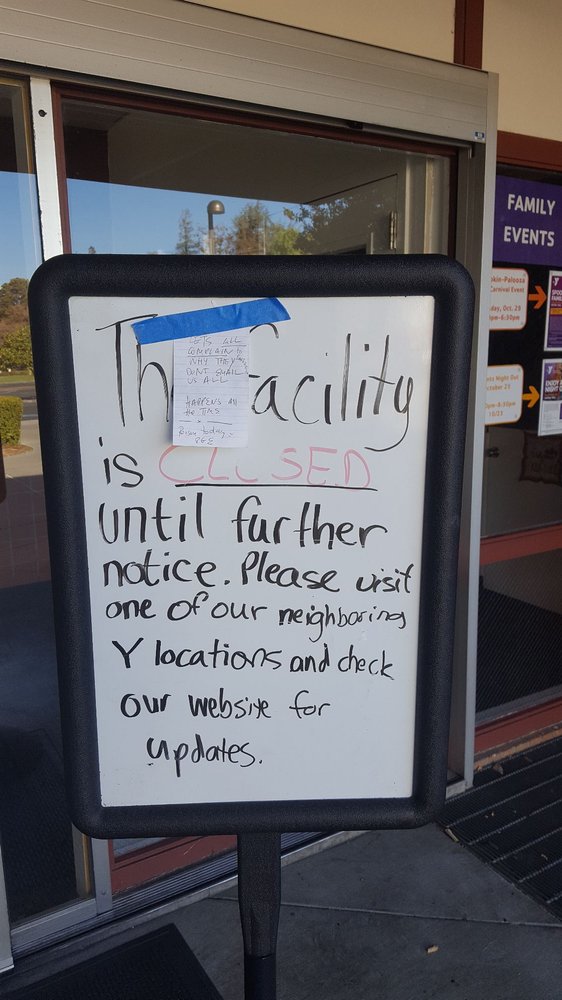 The Facility
is CLOSED
until further
notice. Please visit
one of our neighboring
Y locations and check
our website for
updates.
LETS ALL
COMPLAIN
WHY THEY
DON'T EMAIL
US ALL
HAPPENS All
the TIME
today
FAMILY
EVENTS
kin-Palooza
Carnival Event
day, Oct. 25
pm-6:30pm
nts Night Out
ctober 23
0pm-8:30pm
10/23
SPOO
FAMIL
ENJOY A
NIGHT O